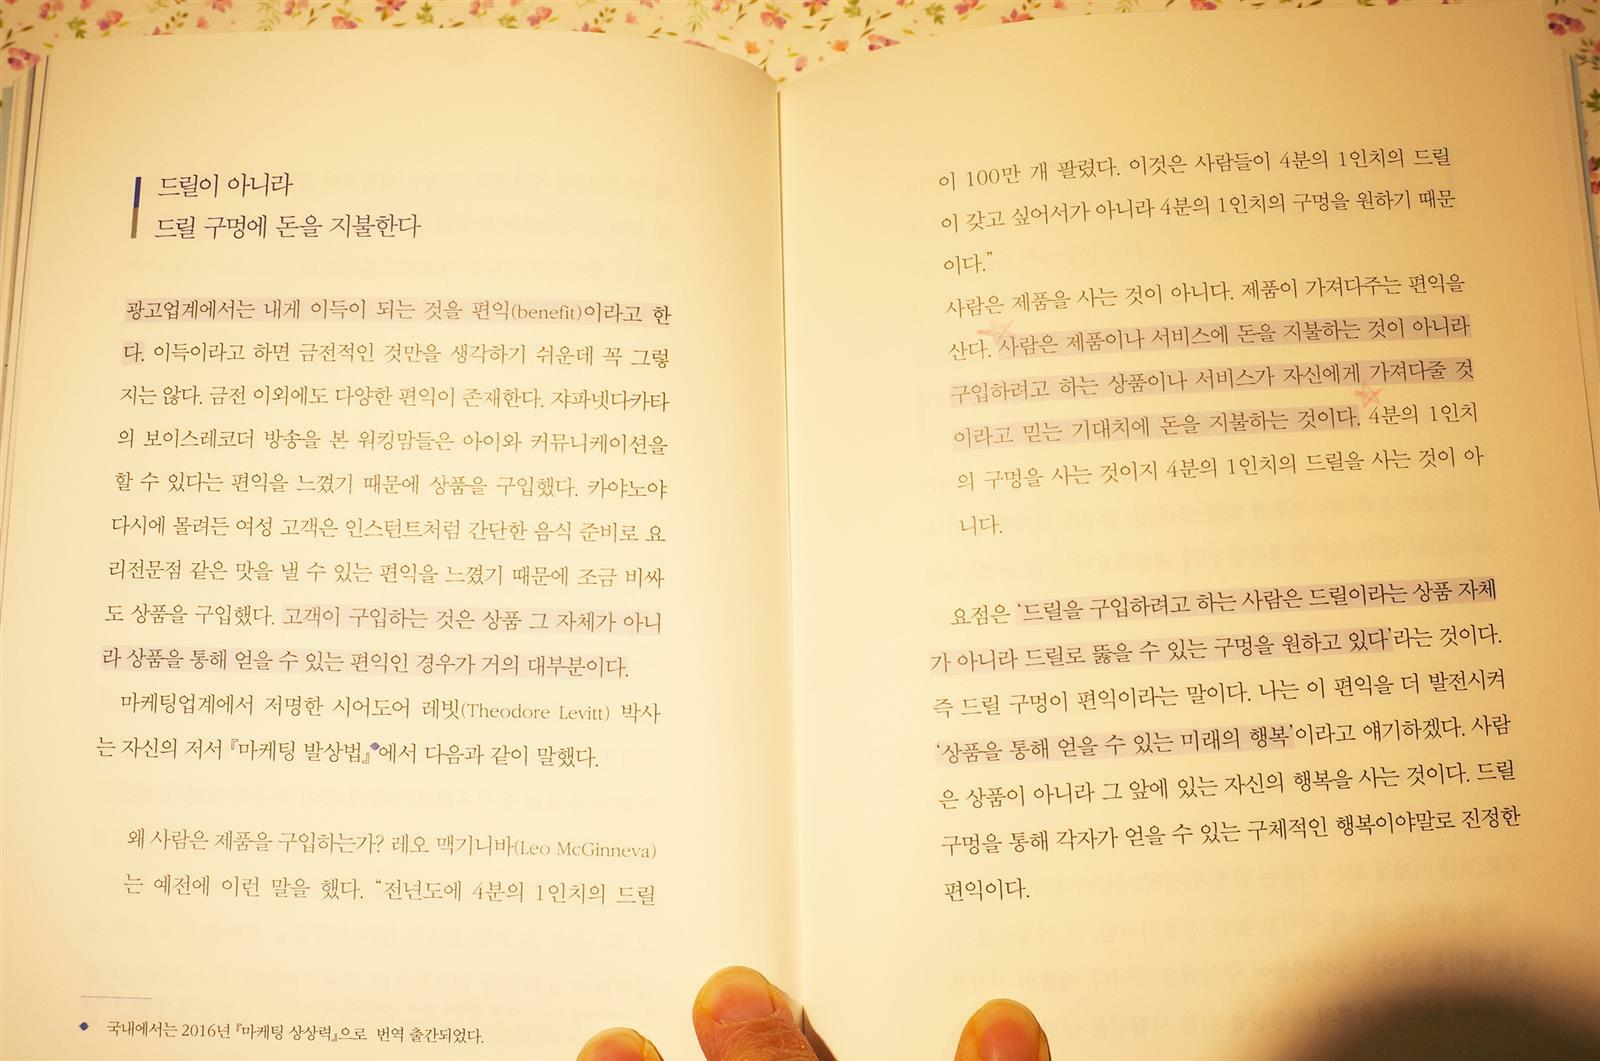 드릴이 아니라
드릴 구멍에 돈을 지불한다
광고업계에서는 내게 이득이 되는 것을 편익(benefit)이라고 한
다. 이득이라고 하면 금전적인 것만을 생각하기 쉬운데 꼭 그렇
지는 않다. 금전 이외에도 다양한 편익이 존재한다. 쟈파넷다카타
의 보이스레코더 방송을 본 워킹맘들은 아이와 커뮤니케이션을
할 수 있다는 편익을 느꼈기 때문에 상품을 구입했다. 카야노야
다시에 몰려든 여성 고객은 인스턴트처럼 간단한 음식 준비로 요
리전문점 같은 맛을 낼 수 있는 편익을 느꼈기 때문에 조금 비싸
도 상품을 구입했다. 고객이 구입하는 것은 상품 그 자체가 아니
라 상품을 통해 얻을 수 있는 편익인 경우가 거의 대부분이다.
마케팅업계에서 저명한 시어도어 레빗(Theodore Levitt) 박사
는 자신의 저서 『마케팅 발상법』에서 다음과 같이 말했다.
왜 사람은 제품을 구입하는가? 레오 맥기니바(Leo McGinneva)
는 예전에 이런 말을 했다. “전년도에 4분의 1인치의 드릴
국내에서는 2016년 『마케팅 상상력』으로 번역 출간되었다.
이 100만 개 팔렸다. 이것은 사람들이 4분의 1인치의 드릴
이 갖고 싶어서가 아니라 4분의 1인치의 구멍을 원하기 때문
이다.”
사람은 제품을 사는 것이 아니다. 제품이 가져다주는 편익을
산다. 사람은 제품이나 서비스에 돈을 지불하는 것이 아니라
구입하려고 하는 상품이나 서비스가 자신에게 가져다줄 것
이라고 믿는 기대치에 돈을 지불하는 것이다. 4분의 1인치
의 구멍을 사는 것이지 4분의 1인치의 드릴을 사는 것이 아
니다.
요점은 ‘드릴을 구입하려고 하는 사람은 드릴이라는 상품 자체
가 아니라 드릴로 뚫을 수 있는 구멍을 원하고 있다’라는 것이다.
즉 드릴 구멍이 편익이라는 말이다. 나는 이 편익을 더 발전시켜
‘상품을 통해 얻을 수 있는 미래의 행복’이라고 얘기하겠다. 사람
은 상품이 아니라 그 앞에 있는 자신의 행복을 사는 것이다. 드릴
구멍을 통해 각자가 얻을 수 있는 구체적인 행복이야말로 진정한
편익이다.